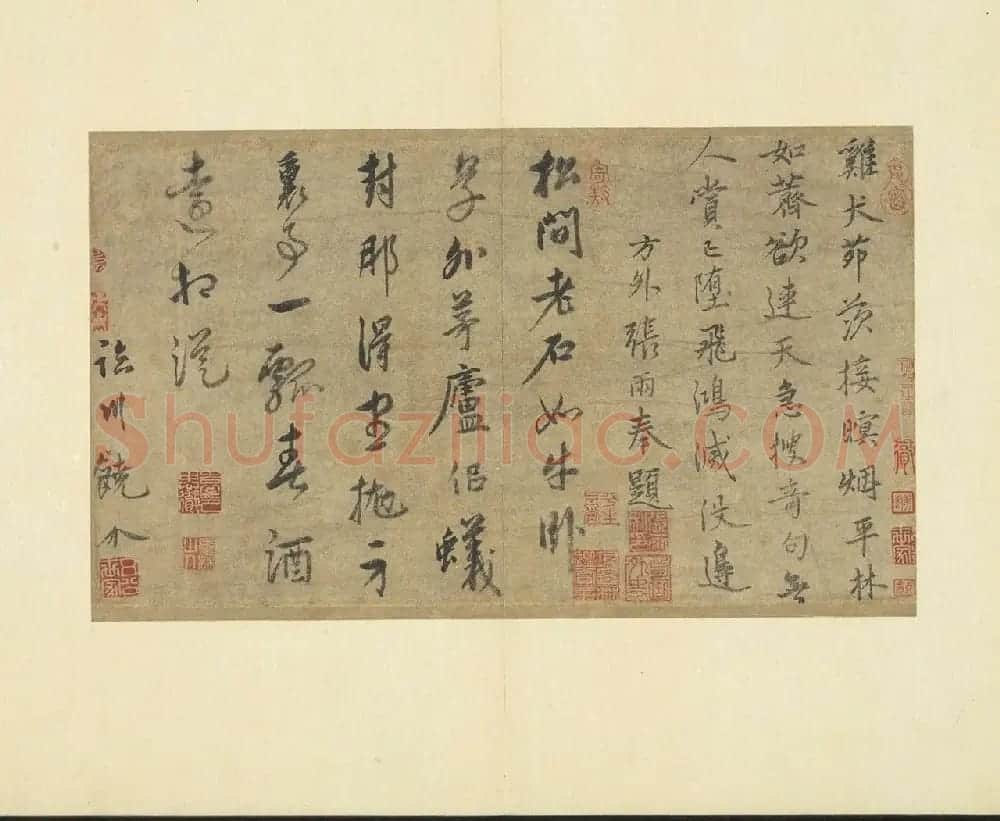 雞犬茆茨接暝烟平林
如薺欲連天急搜奇句無
人賞已墮飛鴻滅没邊
方外張雨奉題
松間老石如牛卧
草外茅廬佀蟻
封那得盡拋
裏事一瓢春酒
遠相從
臨川饒介
Shufaziliao.COM